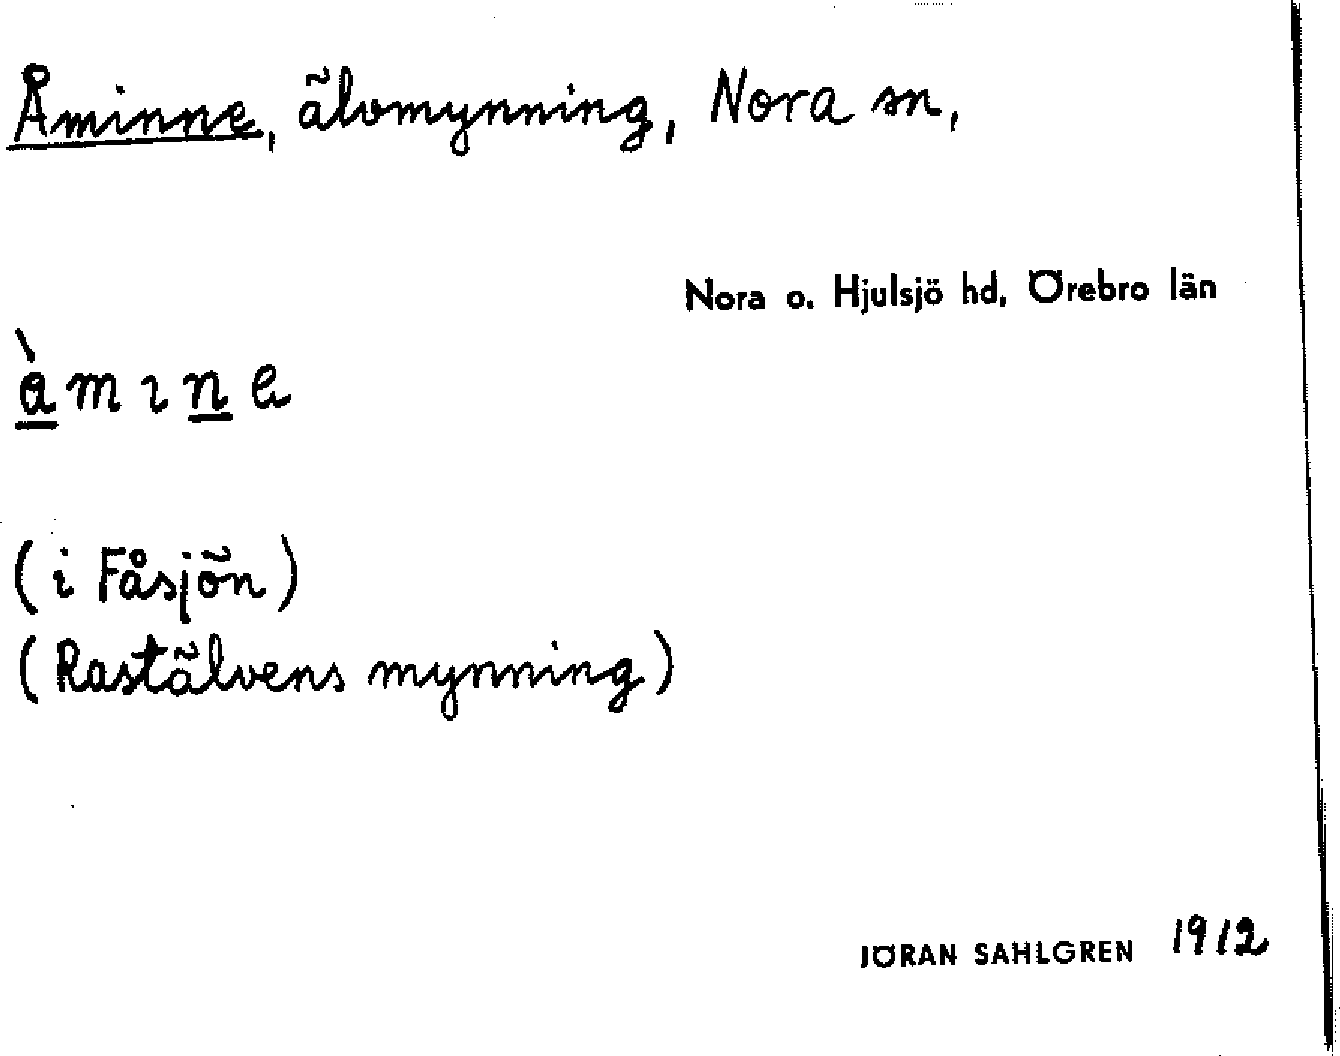 Åminne, älvmynning, Nora sn,
Nora o. Hjulsjö hd, Örebro län
(i Fåsjön)
(Rastälvens mynning)
JÖRAN SAHLGREN 1912